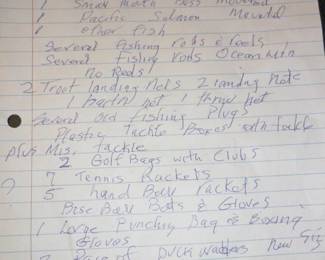 1 Small mouth Bass mounted
1 Pacific Salmon Mounted
1 other fish
Several fishing rods & reels,
Several fishing rods Ocean
No Reels!
2 Trout landing Nets 2 landing Nets
1 net 1 throw net
Several old fishing Plugs
Plastic Tackle Boxes with tackle
plus Mis. tackle
2 Golf Bags with Clubs
? 7 Tennis Rackets
5 hand Ball rackets
Base Ball Bats & Gloves
1 Large Punching Bag & Boxing
Gloves
Pairs of Duck waders New Siz